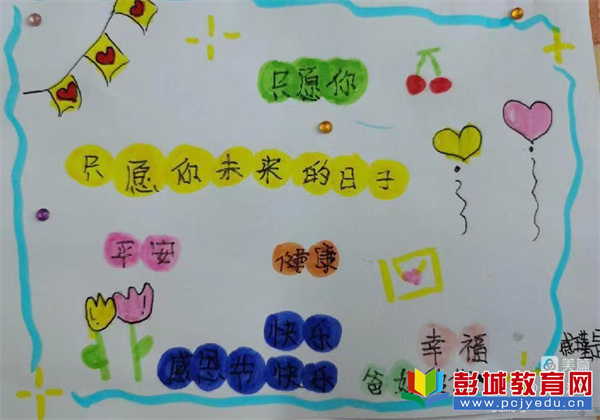 只愿你
只愿你未来的日子
平安
健康
快乐
幸福
感恩节快乐
爸妈
美篇
彭城教育网
www.pcjyedu.cn